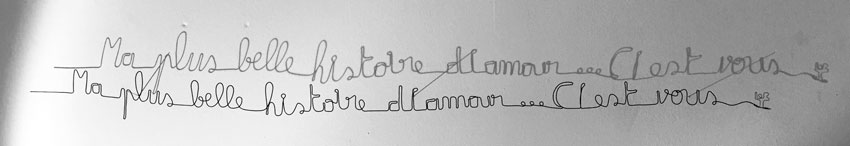 Ma plus belle histoire d'amour... C'est vous
Ma plus belle histoire d'amour... C'est vous